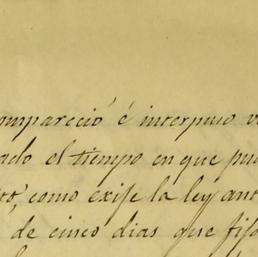 ompareció é interpuso
ado el tiempo en que pu
to, como exije la ley ant
de cinco dias que fij